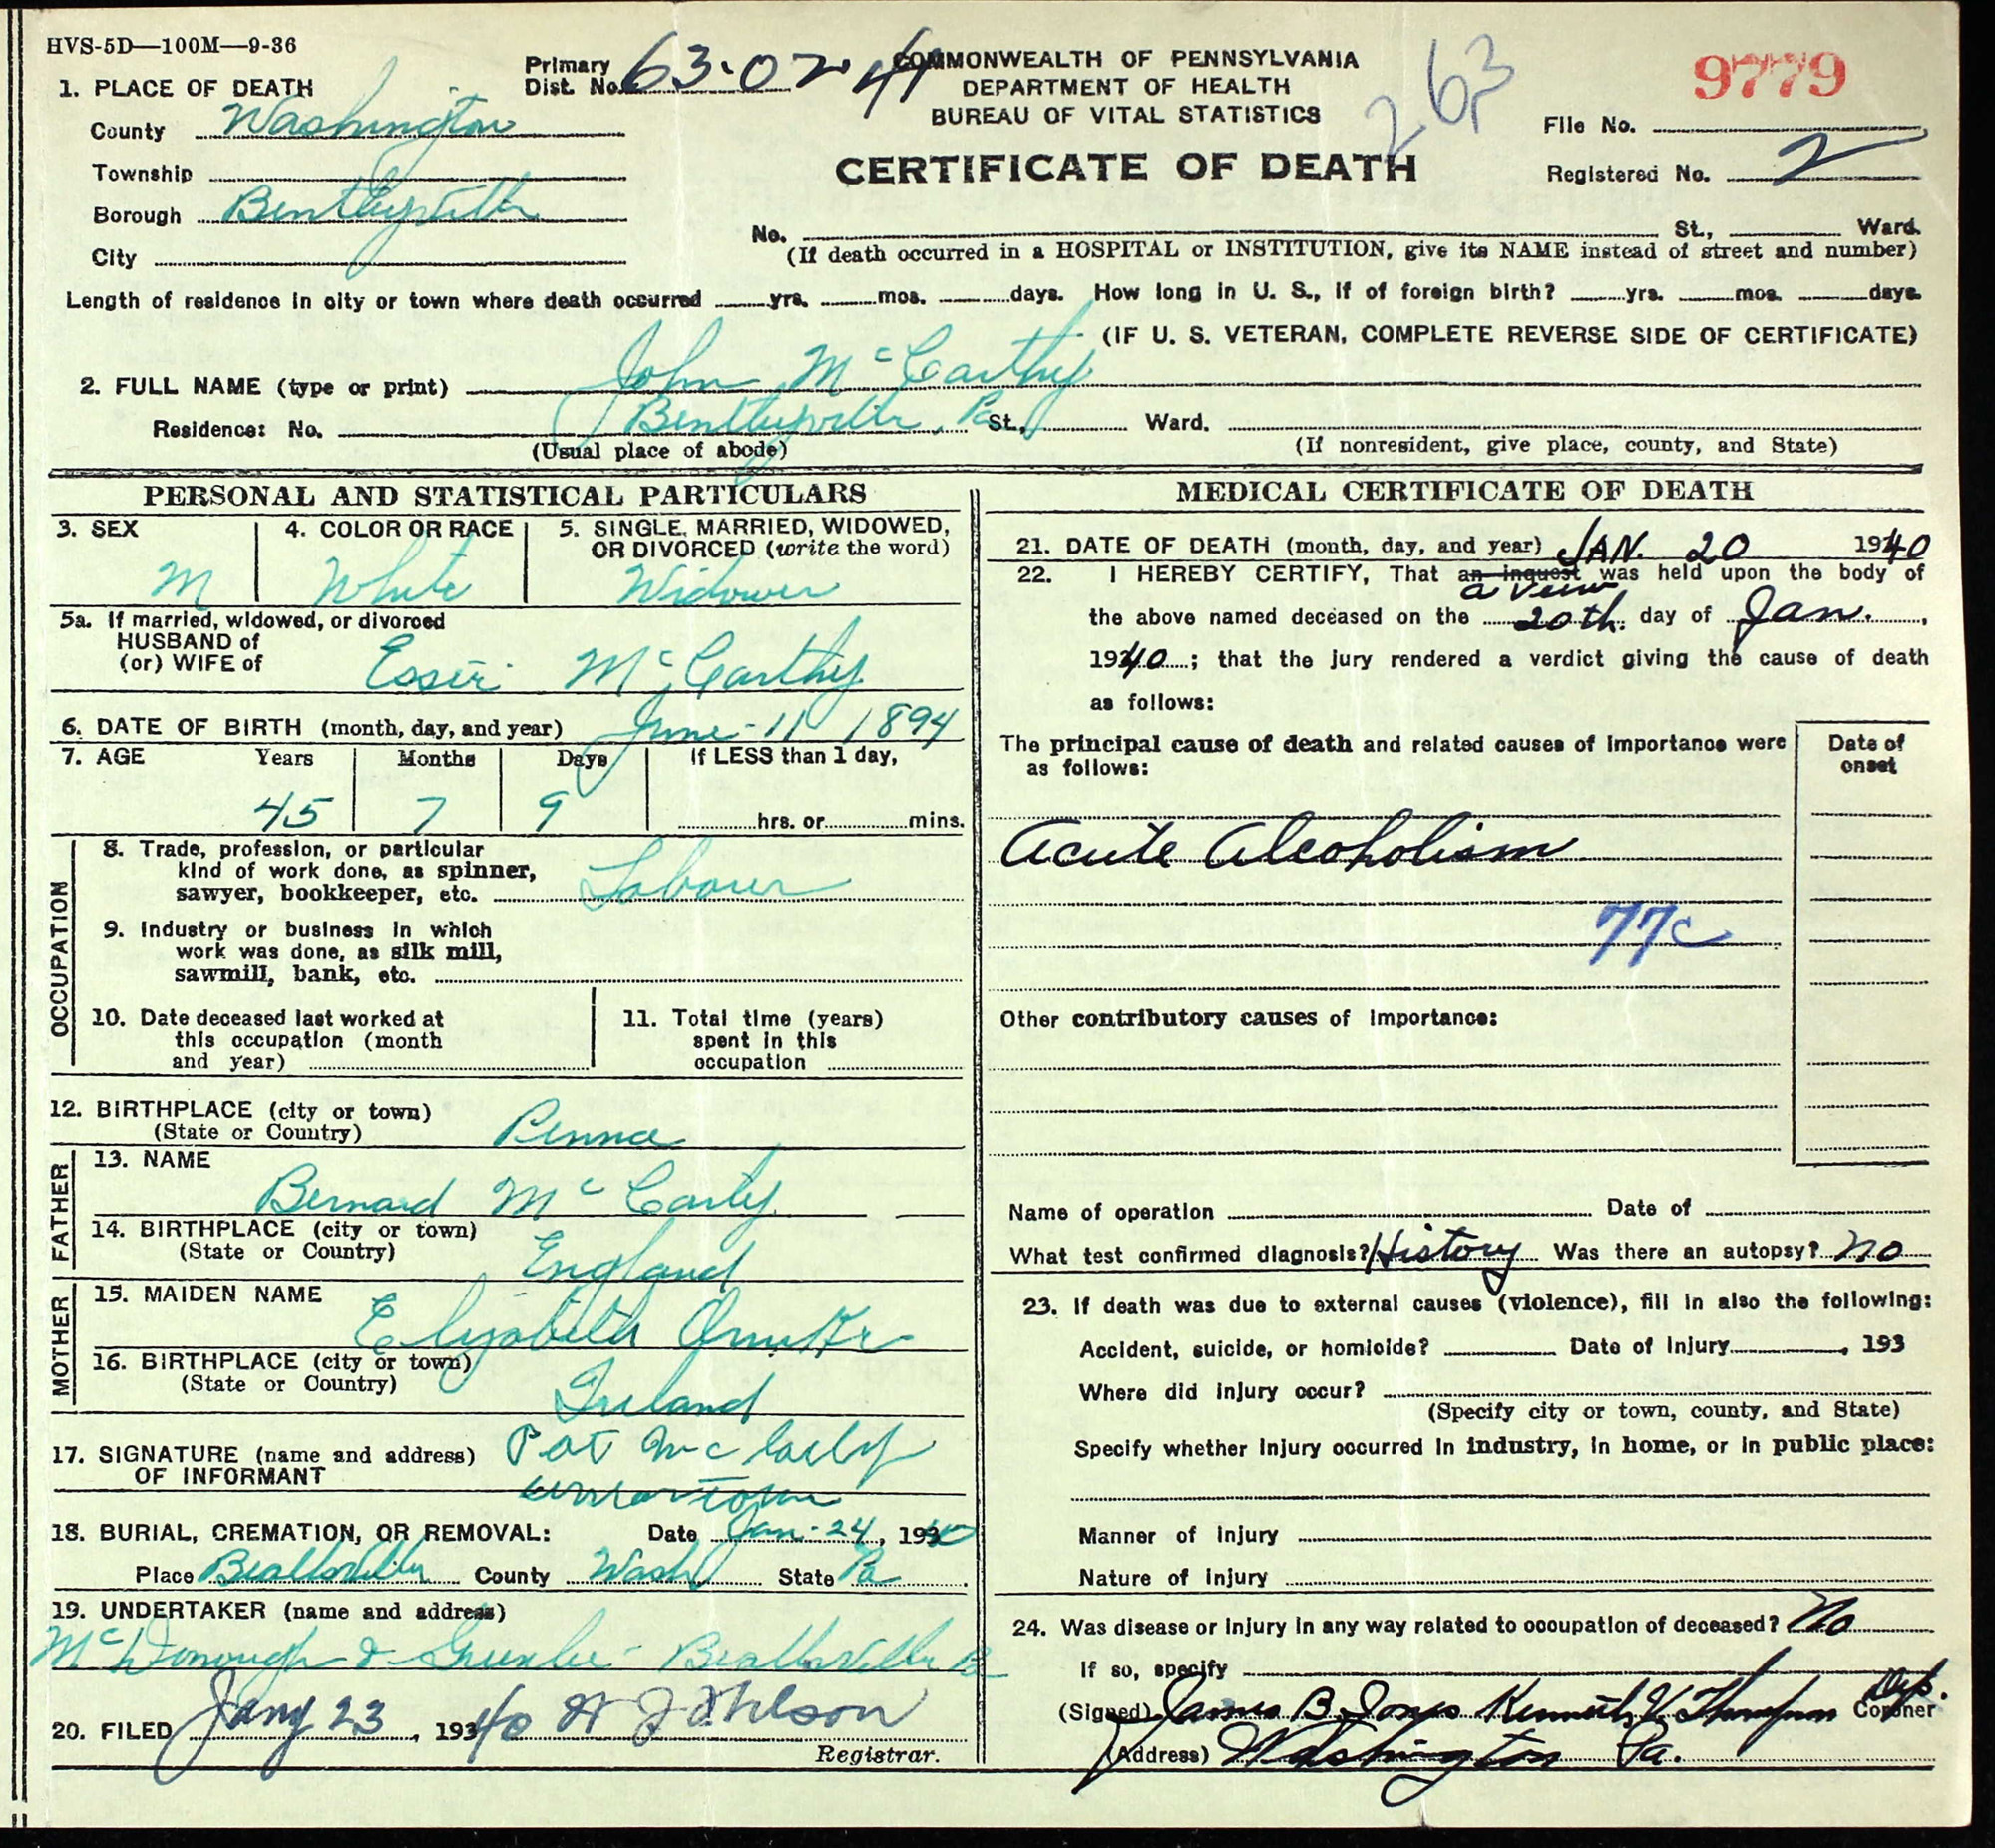 HVS-5D—100M—9-36
Primary Dist. No. 63-02-41
COMMONWEALTH OF PENNSYLVANIA
DEPARTMENT OF HEALTH
BUREAU OF VITAL STATISTICS
263
9779
CERTIFICATE OF DEATH
File No.
Registered No. 2
1. PLACE OF DEATH
County Washington
Township
Borough Bentleyville
City
No. St., Ward.
(If death occurred in a HOSPITAL or INSTITUTION, give its NAME instead of street and number)
Length of residence in city or town where death occurred yrs. mos. days. How long in U. S., if of foreign birth? yrs. mos. days.
(IF U. S. VETERAN, COMPLETE REVERSE SIDE OF CERTIFICATE)
2. FULL NAME (type or print) John McCarthy
Residence: No. Bentleyville, Pa St., Ward.
(Usual place of abode) (If nonresident, give place, county, and State)
PERSONAL AND STATISTICAL PARTICULARS
3. SEX 4. COLOR OR RACE 5. SINGLE, MARRIED, WIDOWED,
OR DIVORCED (write the word)
M White Widower
5a. If married, widowed, or divorced
HUSBAND of
(or) WIFE of McCarthy
6. DATE OF BIRTH (month, day, and year) June - 11 1894
7. AGE Years Months Days If LESS than 1 day,
45 7 9 hrs. or mins.
OCCUPATION
8. Trade, profession, or particular
kind of work done, as spinner,
sawyer, bookkeeper, etc. Labour
9. Industry or business in which
work was done, as silk mill,
sawmill, bank, etc.
10. Date deceased last worked at
this occupation (month
and year)
11. Total time (years)
spent in this
occupation
12. BIRTHPLACE (city or town)
(State or Country) Penna
FATHER
13. NAME
Bernard McCarty
14. BIRTHPLACE (city or town)
(State or Country) England
MOTHER
15. MAIDEN NAME
Elizabeth
16. BIRTHPLACE (city or town)
(State or Country) Ireland
17. SIGNATURE (name and address) Pat
OF INFORMANT
18. BURIAL, CREMATION, OR REMOVAL: Date Jan - 24, 1940
Place Beallsville County Wash State Pa
19. UNDERTAKER (name and address)
McDonough & Greenlee - Beallsville Pa
20. FILED Jany 23, 1940
Registrar.
MEDICAL CERTIFICATE OF DEATH
21. DATE OF DEATH (month, day, and year) JAN. 20 1940
22. I HEREBY CERTIFY, That an inquest was held upon the body of
a view
the above named deceased on the 20th. day of Jan.,
1940; that the jury rendered a verdict giving the cause of death
as follows:
The principal cause of death and related causes of importance were
as follows:
Date of
onset
Acute Alcoholism
77c
Other contributory causes of importance:
Name of operation Date of
What test confirmed diagnosis? History Was there an autopsy? No
23. If death was due to external causes (violence), fill in also the following:
Accident, suicide, or homicide? Date of injury , 193
Where did injury occur?
(Specify city or town, county, and State)
Specify whether injury occurred in industry, in home, or in public place:
Manner of injury
Nature of injury
24. Was disease or injury in any way related to occupation of deceased? No
If so, specify
(Signed) James B Jones Kenneth V. Thompson Dep. Coroner
(Address) Washington Pa.